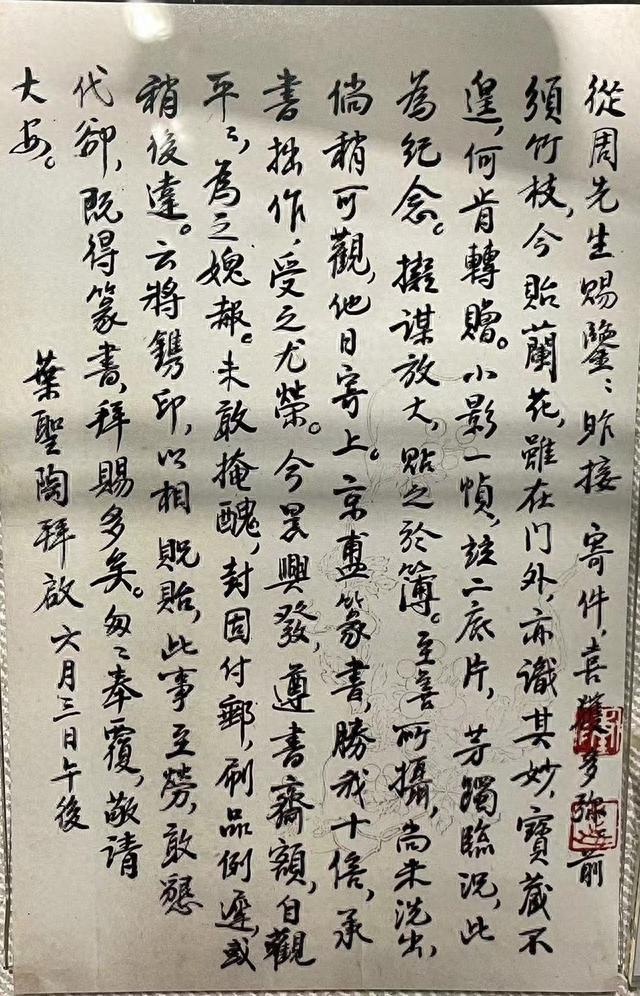 從周先生賜鑒：昨接 寄件，喜獲多珎。前
須竹枝，今貽蘭花，雖在门外，亦識其妙，寶藏不
遑，何肯轉贈。小影一幀，二底片，芳躅臨況，此
為紀念。擬謀放大，貼之於簿。至善所攝，尚未洗出，
倘稍可觀，他日寄上。京盙篆書，勝我十倍，承
書拙作，受之尤榮。今晨興發，遵書齋額，自觀
平〻，為之媿赧。未敢掩醜，封固付郵，刷品例遲，或
稍後達。云將鐫印，以相貺貽，此事至勞，敢懇
代卻，既得篆書，拜賜多矣。匆〻奉覆，敬请
大安。
葉聖陶拜啟 六月三日午後